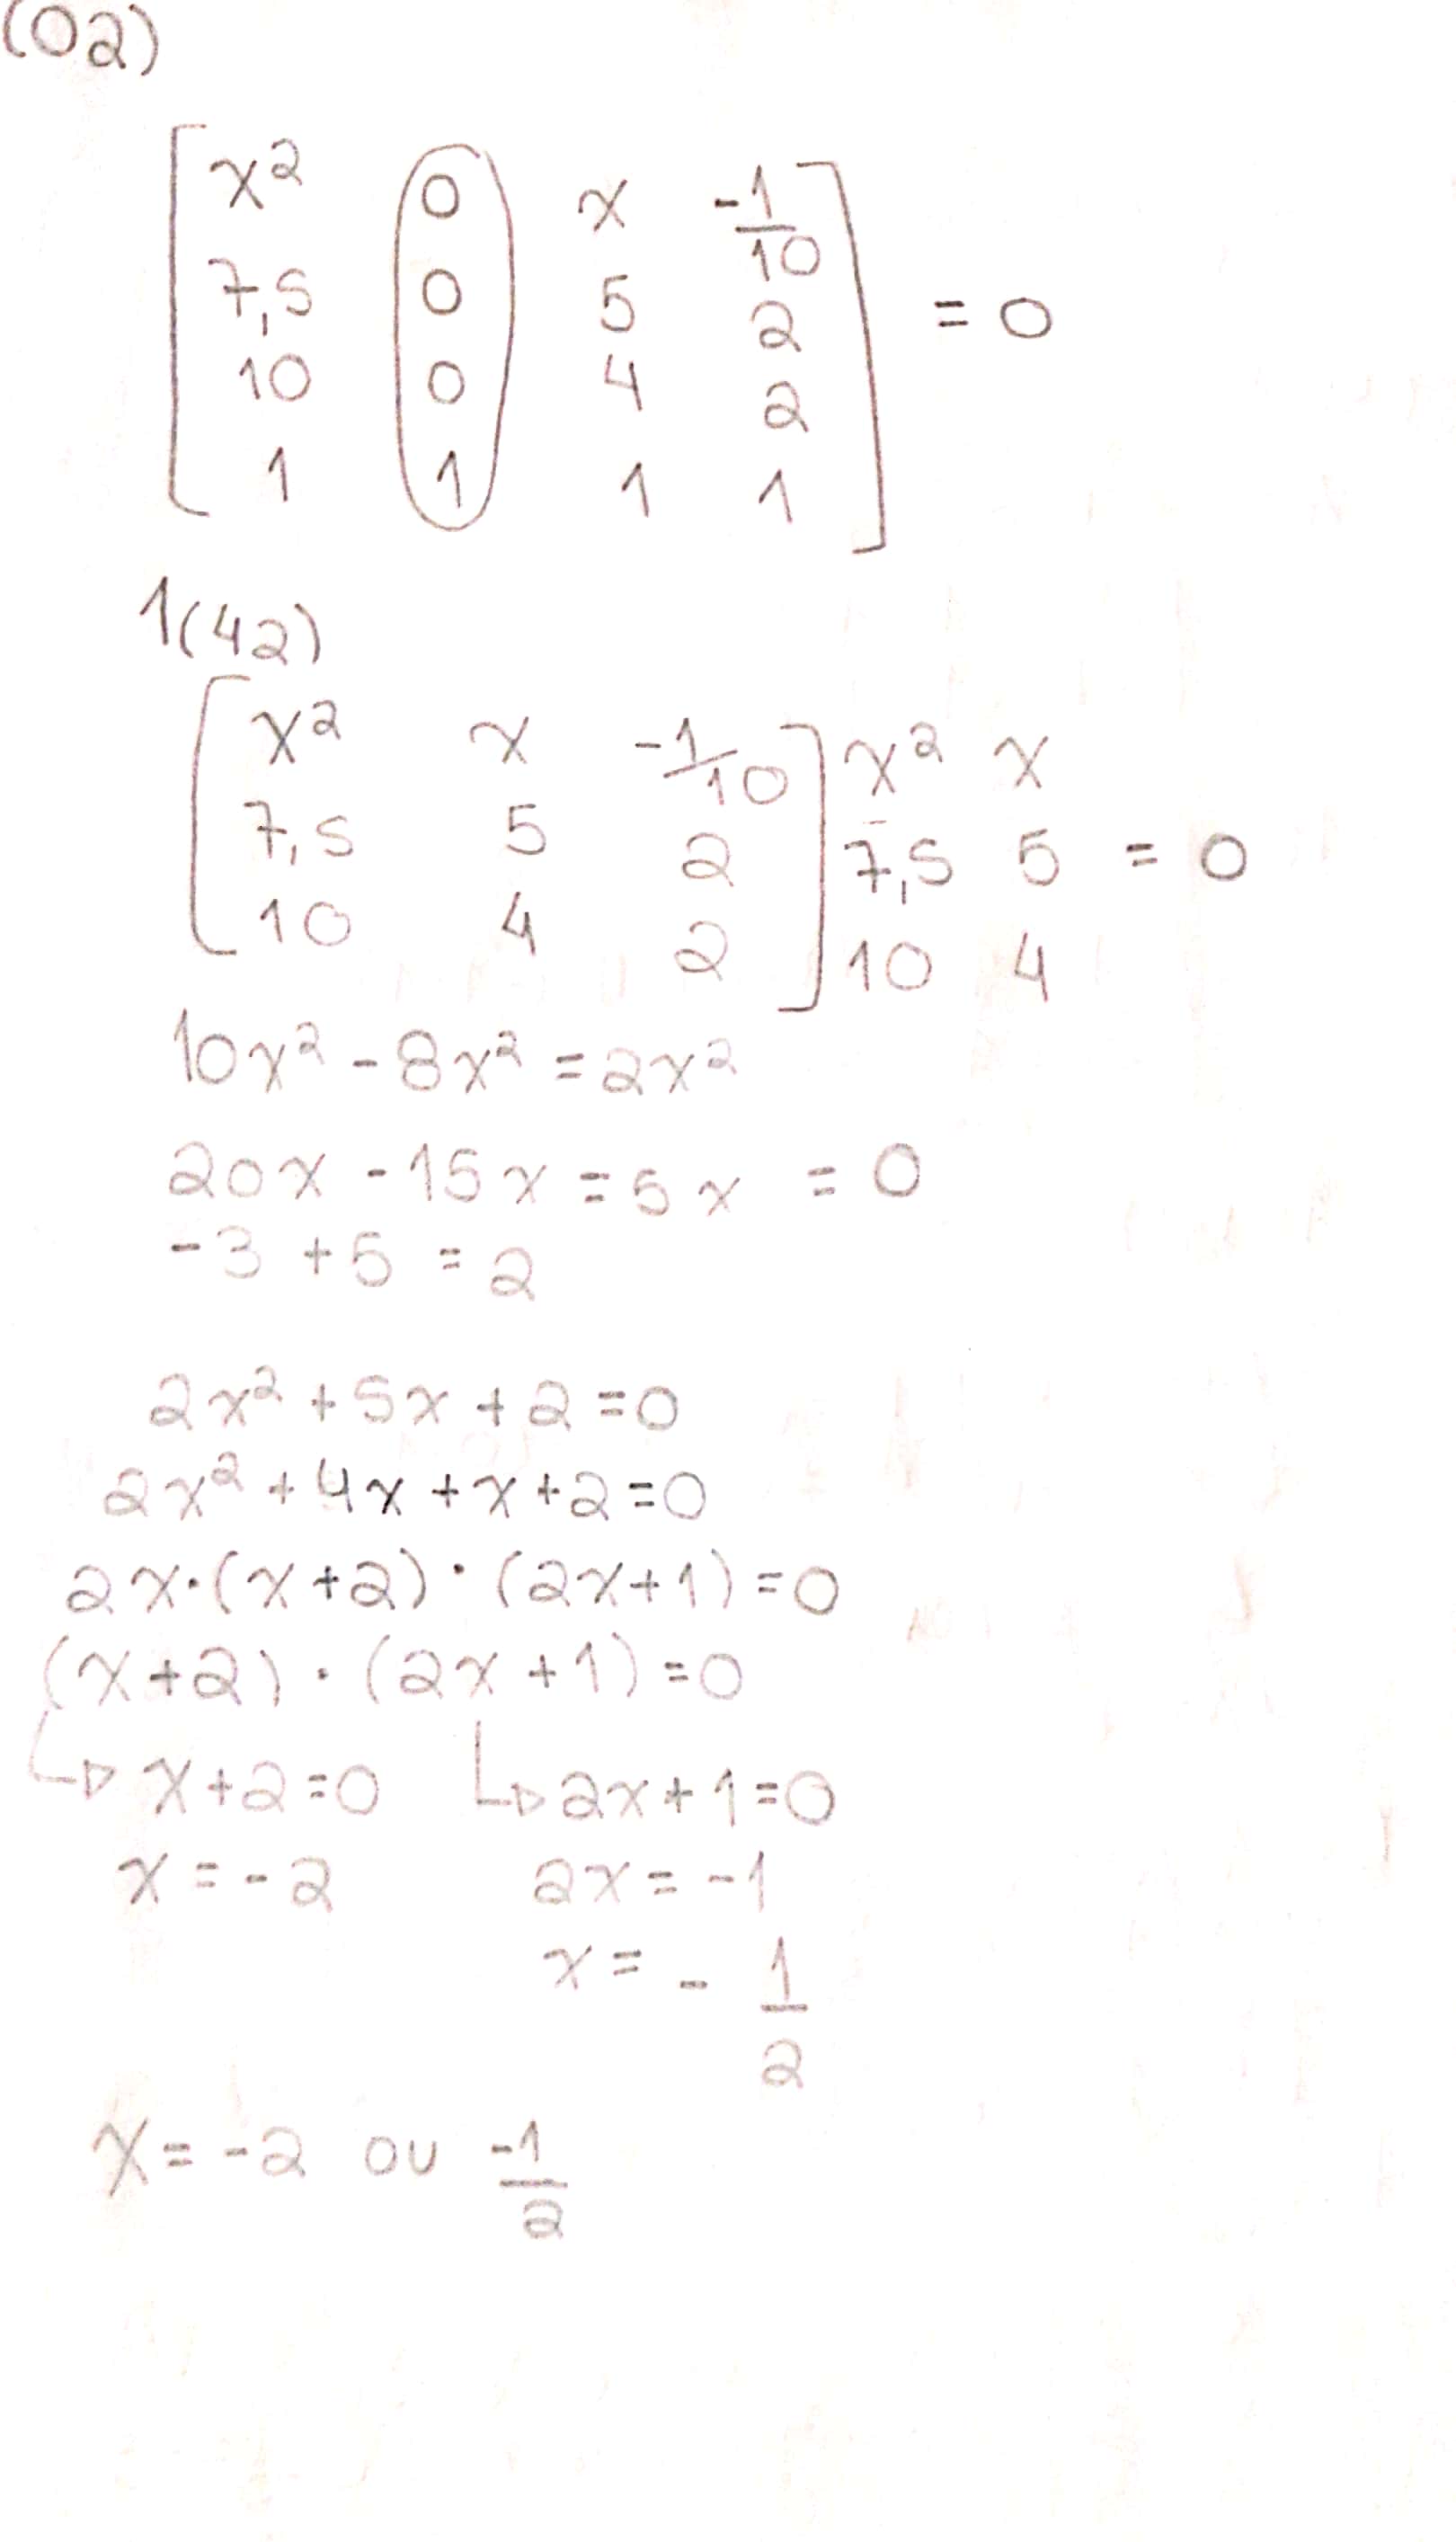 (02)
x² 0 x -1/10
7,5 0 5 2 = 0
10 0 4 2
1 1 1 1
1(42)
x² x -1/10 x² x
7,5 5 2 7,5 5 = 0
10 4 2 10 4
10x² - 8x² = 2x²
20x - 15x = 5x = 0
-3 + 5 = 2
2x² + 5x + 2 = 0
2x² + 4x + x + 2 = 0
2x·(x+2)·(2x+1) = 0
(x+2)·(2x+1) = 0
x+2=0 2x+1=0
x = -2 2x = -1
x = - 1/2
x = -2 ou -1/2